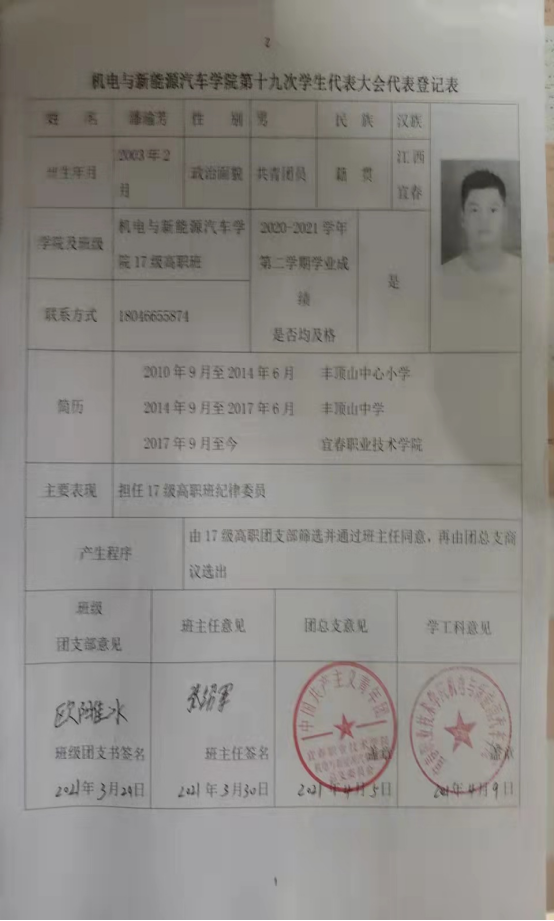 2
机电与新能源汽车学院第十九次学生代表大会代表登记表
姓 名 潘瑜芳 性 别 男 民 族 汉族
出生年月 2003年2月 政治面貌 共青团员 籍 贯 江西宜春
学院及班级 机电与新能源汽车学院17级高职班
2020-2021学年
第二学期学业成
绩
是否均及格
是
联系方式 18046655874
简历
2010年9月至2014年6月 丰顶山中心小学
2014年9月至2017年6月 丰顶山中学
2017年9月至今 宜春职业技术学院
主要表现 担任17级高职班纪律委员
产生程序
由17级高职团支部筛选并通过班主任同意，再由团总支商
议选出
班级
团支部意见
班主任意见 团总支意见 学工科意见
中国共产主义青年团
宜春职业技术学院
班级团支书签名 班主任签名
2021年3月29日 2021年3月30日 2021年4月5日 2021年4月9日
1